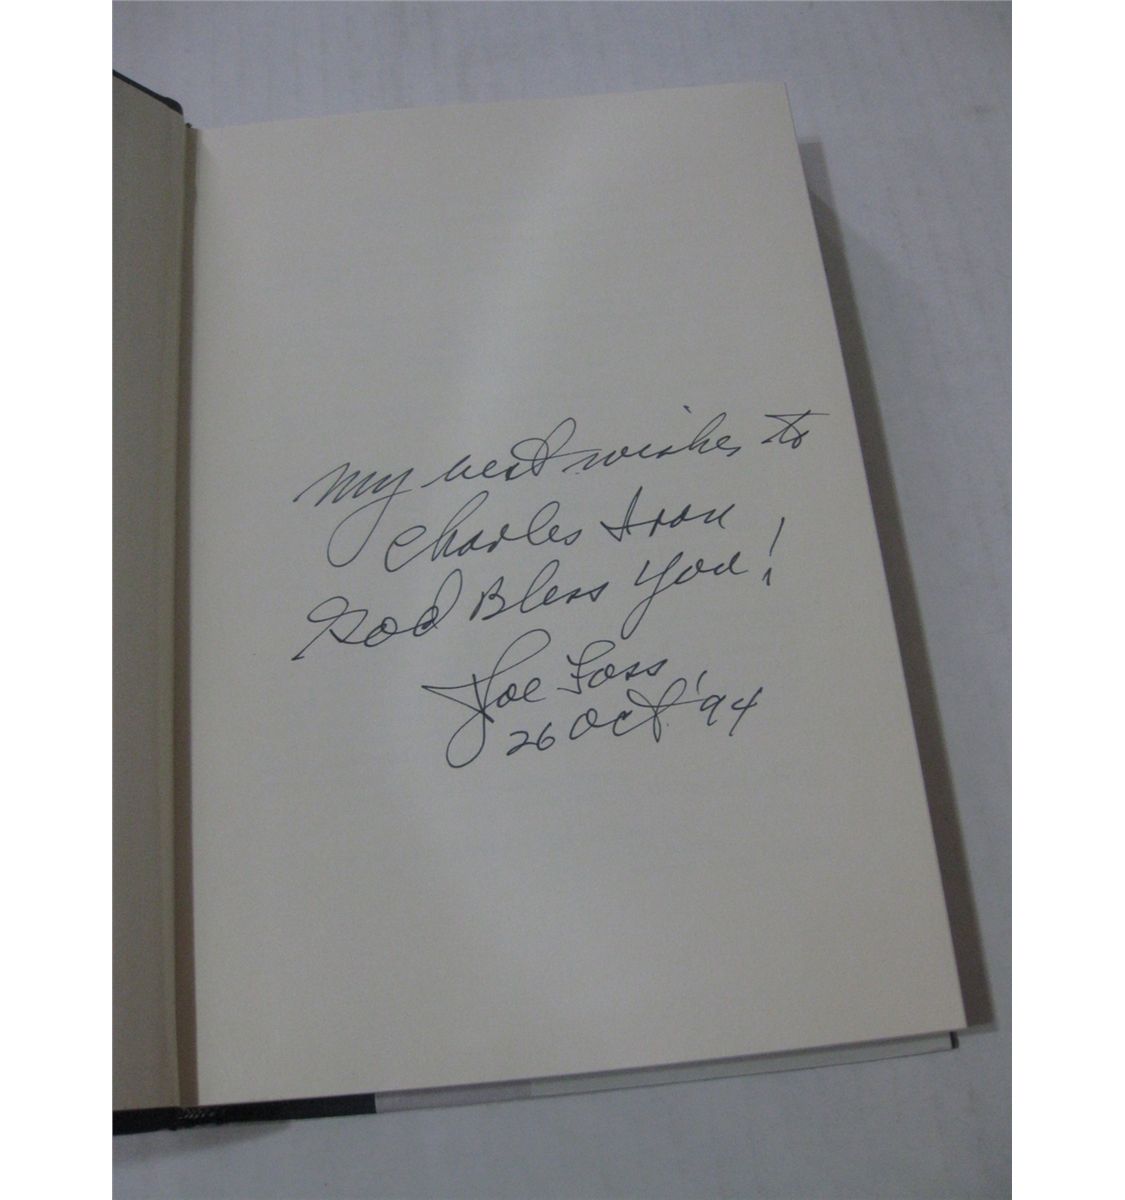 My best wishes to
Charles
God Bless You!
Joe Foss
26 Oct '94